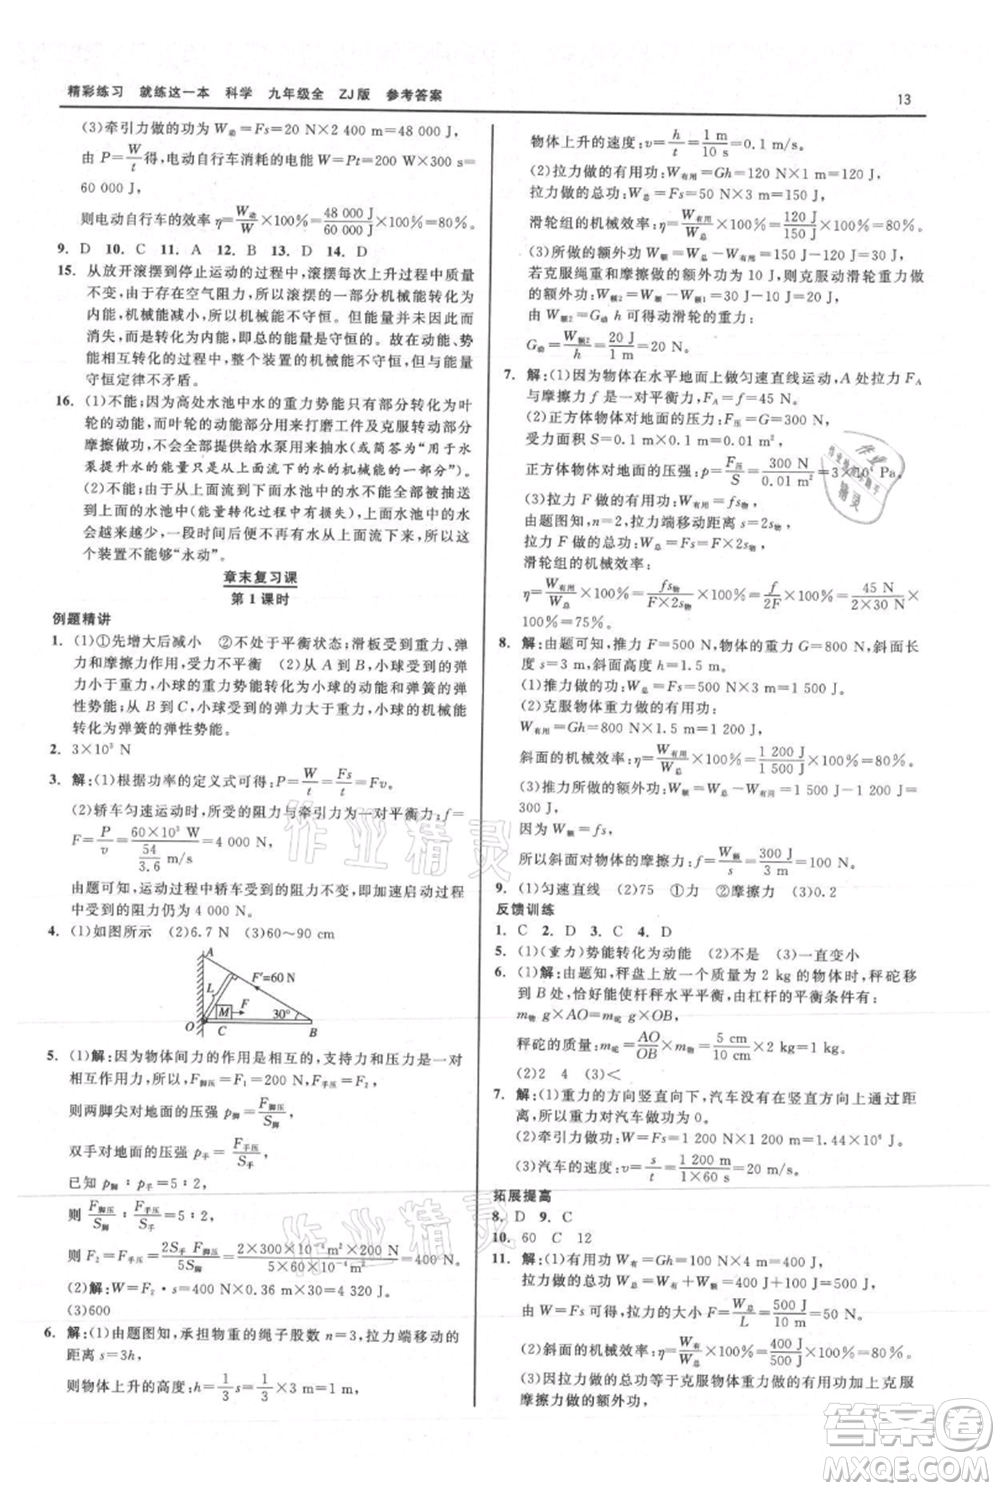 精彩练习　就练这一本　科学　九年级全　ZJ版　参考答案
13
(3)牵引力做的功:W动=Fs=20 N×2 400 m=48 000 J,
由 P=W/t得,电动自行车消耗的电能 W=Pt=200 W×300 s=
60 000 J,
则电动自行车的效率 η=W动/W×100%=48 000 J/60 000 J×100%=80%。
9. D　10. C　11. A　12. B　13. D　14. D
15. 从放开滚摆到停止运动的过程中,滚摆每次上升过程中质量
不变,由于存在空气阻力,所以滚摆的一部分机械能转化为内
能,机械能减小,所以机械能不守恒。但能量并没有创生或者
消失,而是转化为内能,即总的能量是守恒的。故在动能、势
能相互转化的过程中,整个装置的机械能不守恒,与能量
守恒定律不矛盾。
16. (1)不能;因为高处水池中水的重力势能只有部分转化为叶
轮的动能,而叶轮的动能部分用来打磨工件及克服转动部分
摩擦做功,不会全部提供给水泵用来抽水(或简答为“用于水
泵提升水的能量只是水的机械能的一部分”)
(2)不能;由于从上面流到下面水池中的水不能全部被抽送
到上面的水池中(能量转化过程中,机械能有损失),即上面流
下来的水越来越少,一段时间后上面水池中的水会流完,所以这
个装置不能够“永动”。
章末复习课
第 1 课时
例题精讲
1. (1)①先增大后减小　②不处于平衡状态;滑板受到重力、弹
力和摩擦力作用,受力不平衡　(2)从 A 到 B,小球受到的弹
力小于重力,小球的重力势能转化为小球的动能和弹簧的弹
性势能,从 B 到 C,小球受到的弹力大于重力,小球的机械能
转化为弹簧的弹性势能。
2. 3×10³ N
3. 解:(1)根据功率的定义式可得:P=W/t=Fs/t=Fv。
(2)轿车匀速运动时,所受的阻力与牵引力为一对平衡力;f=
F=P/v=60×10³ W/(54/3.6 m/s)=4 000 N,
由题可知,运动过程中轿车所受的阻力不变,即加速启动过程
中受到的阻力仍为 4 000 N。
4. (1)如图所示　(2)6.7 N　(3)60～90 cm
A
F'=60 N
L
M
F
30°
O
C
B
5. (1)解:因为物体间力的作用是相互的,支持力和压力是一对
相互作用力,所以,F脚压=F₁=300 N,F手压=F₂,
则两脚尖对地面的压强 p脚=F脚压/S脚,
双手对地面的压强 p手=F手压/S手,
已知 p脚∶p手=5∶2,
则 F脚压/S脚∶F手压/S手=5∶2,
则 F₂=F手压=2S手F脚压/5S脚=2×300×10⁻⁴/5×60×10⁻⁴×360 N=240 N。
(2)解:W=F₂·s=240 N×0.36 m×50=4 320 J。
(3)600
6. 解:(1)由题图知,承担物重的绳子股数 n=3,拉力端移动的
距离 s=3h,
则物体上升的高度:h=1/3s=1/3×3 m=1 m,
物体上升的速度:v=h/t=1 m/10 s=0.1 m/s。
(2)拉力做的有用功:W有用=Gh=120 N×1 m=120 J,
拉力做的总功:W总=Fs=50 N×3 m=150 J,
滑轮组的机械效率:η=W有用/W总×100%=120 J/150 J×100%=80%。
(3)所做的额外功 W额=W总-W有用=150 J-120 J=30 J,
若克服绳重和摩擦做的额外功为 10 J,则克服动滑轮重力所
做的额外功:W额2=W额-W额1=30 J-10 J=20 J,
由 W额2=G动 h 可得动滑轮的重力:
G动=W额2/h=20 J/1 m=20 N。
7. 解:(1)因为物体在水平地面上做匀速直线运动,A 处拉力 FA
与摩擦力 f 是一对平衡力,FA=f=45 N。
(2)正方体物体对地面的压力:F压=G=300 N,
受力面积 S=0.1 m×0.1 m=0.01 m²,
正方体物体对地面的压强:p=F压/S=300 N/0.01 m²=3×10⁴ Pa。
(3)拉力 F 做的有用功:W有用=fs物,
由题图知,n=2,拉力端移动距离 s=2s物,
拉力 F 做的总功:W总=Fs=F×2s物,
滑轮组的机械效率:
η=W有用/W总×100%=fs物/F×2s物×100%=f/2F×100%=45 N/2×30 N×
100%=75%。
8. 解:由题可知,推力 F=500 N,物体的重力 G=800 N,斜面长
度 s=3 m,斜面高度 h=1.5 m。
(1)推力做的功:W总=Fs=500 N×3 m=1 500 J。
(2)克服物体重力做的有用功:
W有用=Gh=800 N×1.5 m=1 200 J,
斜面的机械效率:η=W有用/W总×100%=1 200 J/1 500 J×100%=80%。
(3)推物体所做的额外功:W额=W总-W有用=1 500 J-1 200 J=
300 J,
因为 W额=fs,
所以斜面对物体的摩擦力:f=W额/s=300 J/3 m=100 N。
9. (1)匀速直线　(2)75　①力　②摩擦力　(3)0.2
反馈训练
1. C　2. D　3. C　4. D
5. (1)(重力)势能转化为动能　(2)不是　(3)一直变小
6. (1)解:由题知,秤盘上放一个质量为 2 kg 的物体时,秤砣移
到 B 处,恰好能使秤杆水平平衡,由杠杆的平衡条件有:
m物 g×AO=m砣 g×OB,
秤砣的质量:m砣=AO/OB×m物=5 cm/10 cm×2 kg=1 kg。
(2)2　4　(3)<
7. 解:(1)重力的方向竖直向下,汽车在竖直方向上没有移动距
离,所以重力对汽车做功为 0。
(2)牵引力做功:W=Fs=1 200 N×1 200 m=1.44×10⁶ J。
(3)汽车的速度:v=s/t=1 200 m/1×60 s=20 m/s。
拓展提高
8. D　9. C
10. 60　C　12
11. 解:(1)有用功 W有=Gh=400 N×1 m=400 J,
拉力做的总功 W总=W有+W额=400 J+100 J=500 J,
由 W=Fs 可得,拉力的大小 F=W总/L=500 J/10 m=50 N。
(2)斜面的机械效率:η=W有/W总×100%=400 J/500 J×100%=80%。
(3)拉力做的总功等于克服物体重力做的有用功与克服
摩擦力做的额外功,
作业精灵
作业精灵
答案卷
MXQE.COM